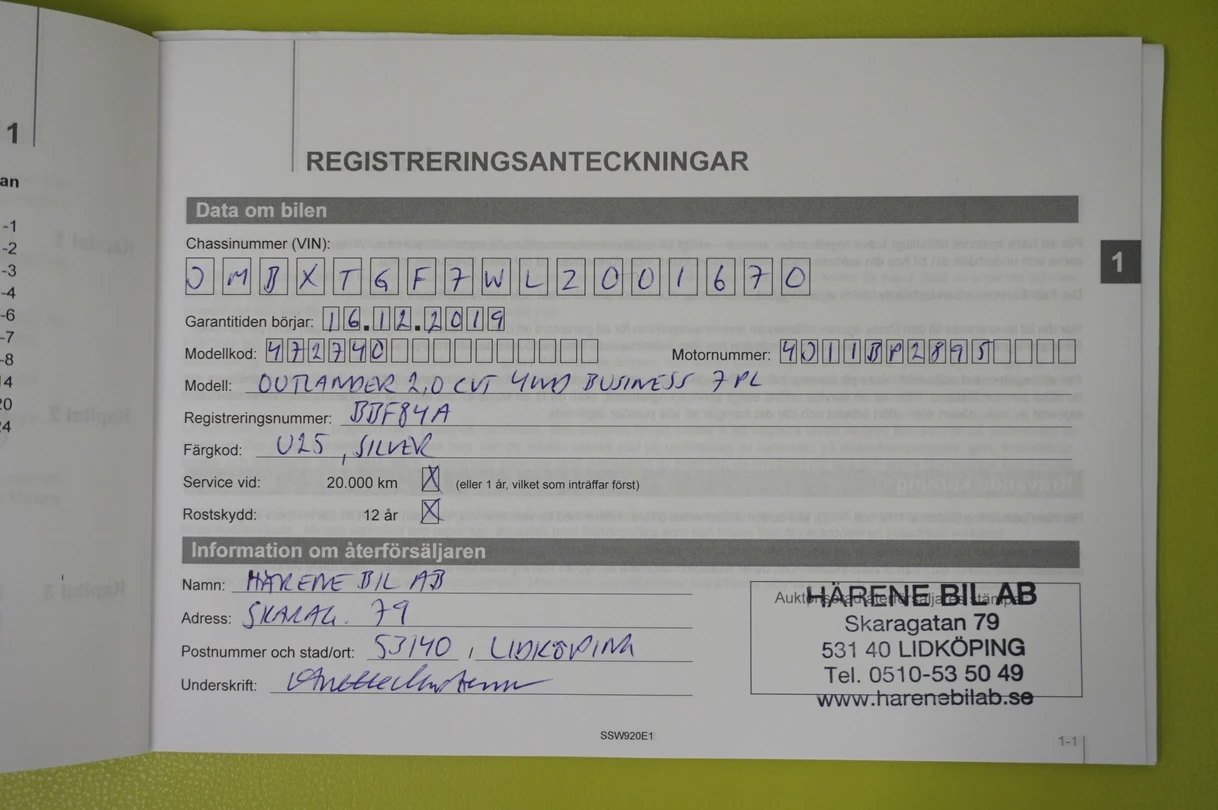 1
an
-1
-2
-3
-4
-6
-7
-8
14
20
24
REGISTRERINGSANTECKNINGAR
Data om bilen
1
Chassinummer (VIN):
JMBXTGF7WLZ001670
Garantitiden börjar: 16.12.2019
Modellkod: 472740 Motornummer: 4J11BP2895
Modell: OUTLANDER 2,0 CVT 4WD BUSINESS 7PL
Registreringsnummer: BBF84A
Färgkod: U25, SILVER
Service vid: 20.000 km X (eller 1 år, vilket som inträffar först)
Rostskydd: 12 år X
Information om återförsäljaren
Namn: HÄRENE BIL AB
Adress: SKARAG. 79
Postnummer och stad/ort: 53140 / LIDKÖPING
Underskrift:
Auktoriserad återförsäljares stämpel
HÄRENE BIL AB
Skaragatan 79
531 40 LIDKÖPING
Tel. 0510-53 50 49
www.harenebilab.se
SSW920E1
1-1